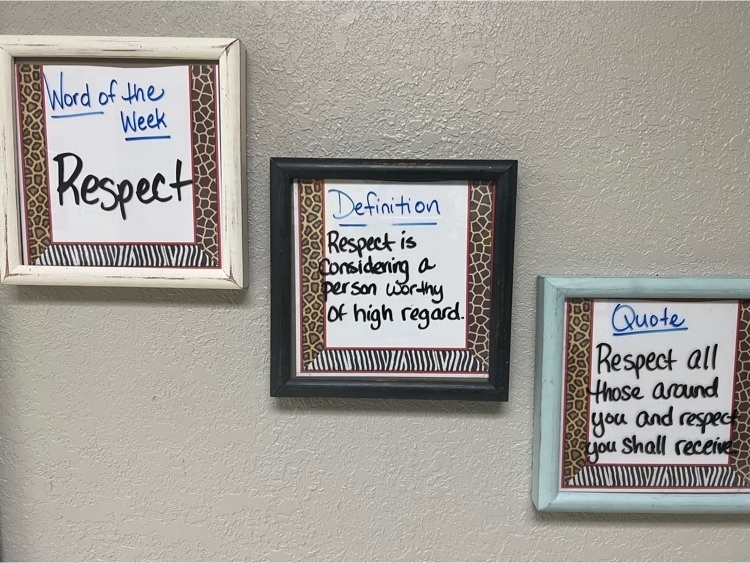 Word of the
Week
Respect
Definition
Respect is
Considering a
person worthy
Of high regard.
Quote
Respect all
those around
you and respect
you shall receive.